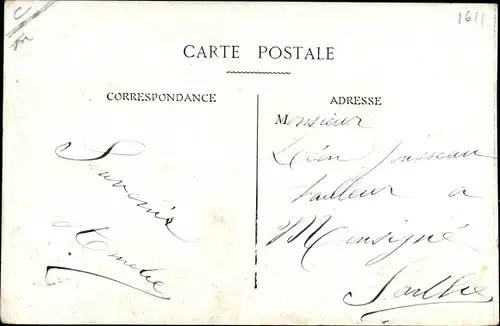 1611
CARTE POSTALE
CORRESPONDANCE
ADRESSE
Monsieur
Léon
tailleur a
Mansigné
Sarthe
Souvenir
Amélie